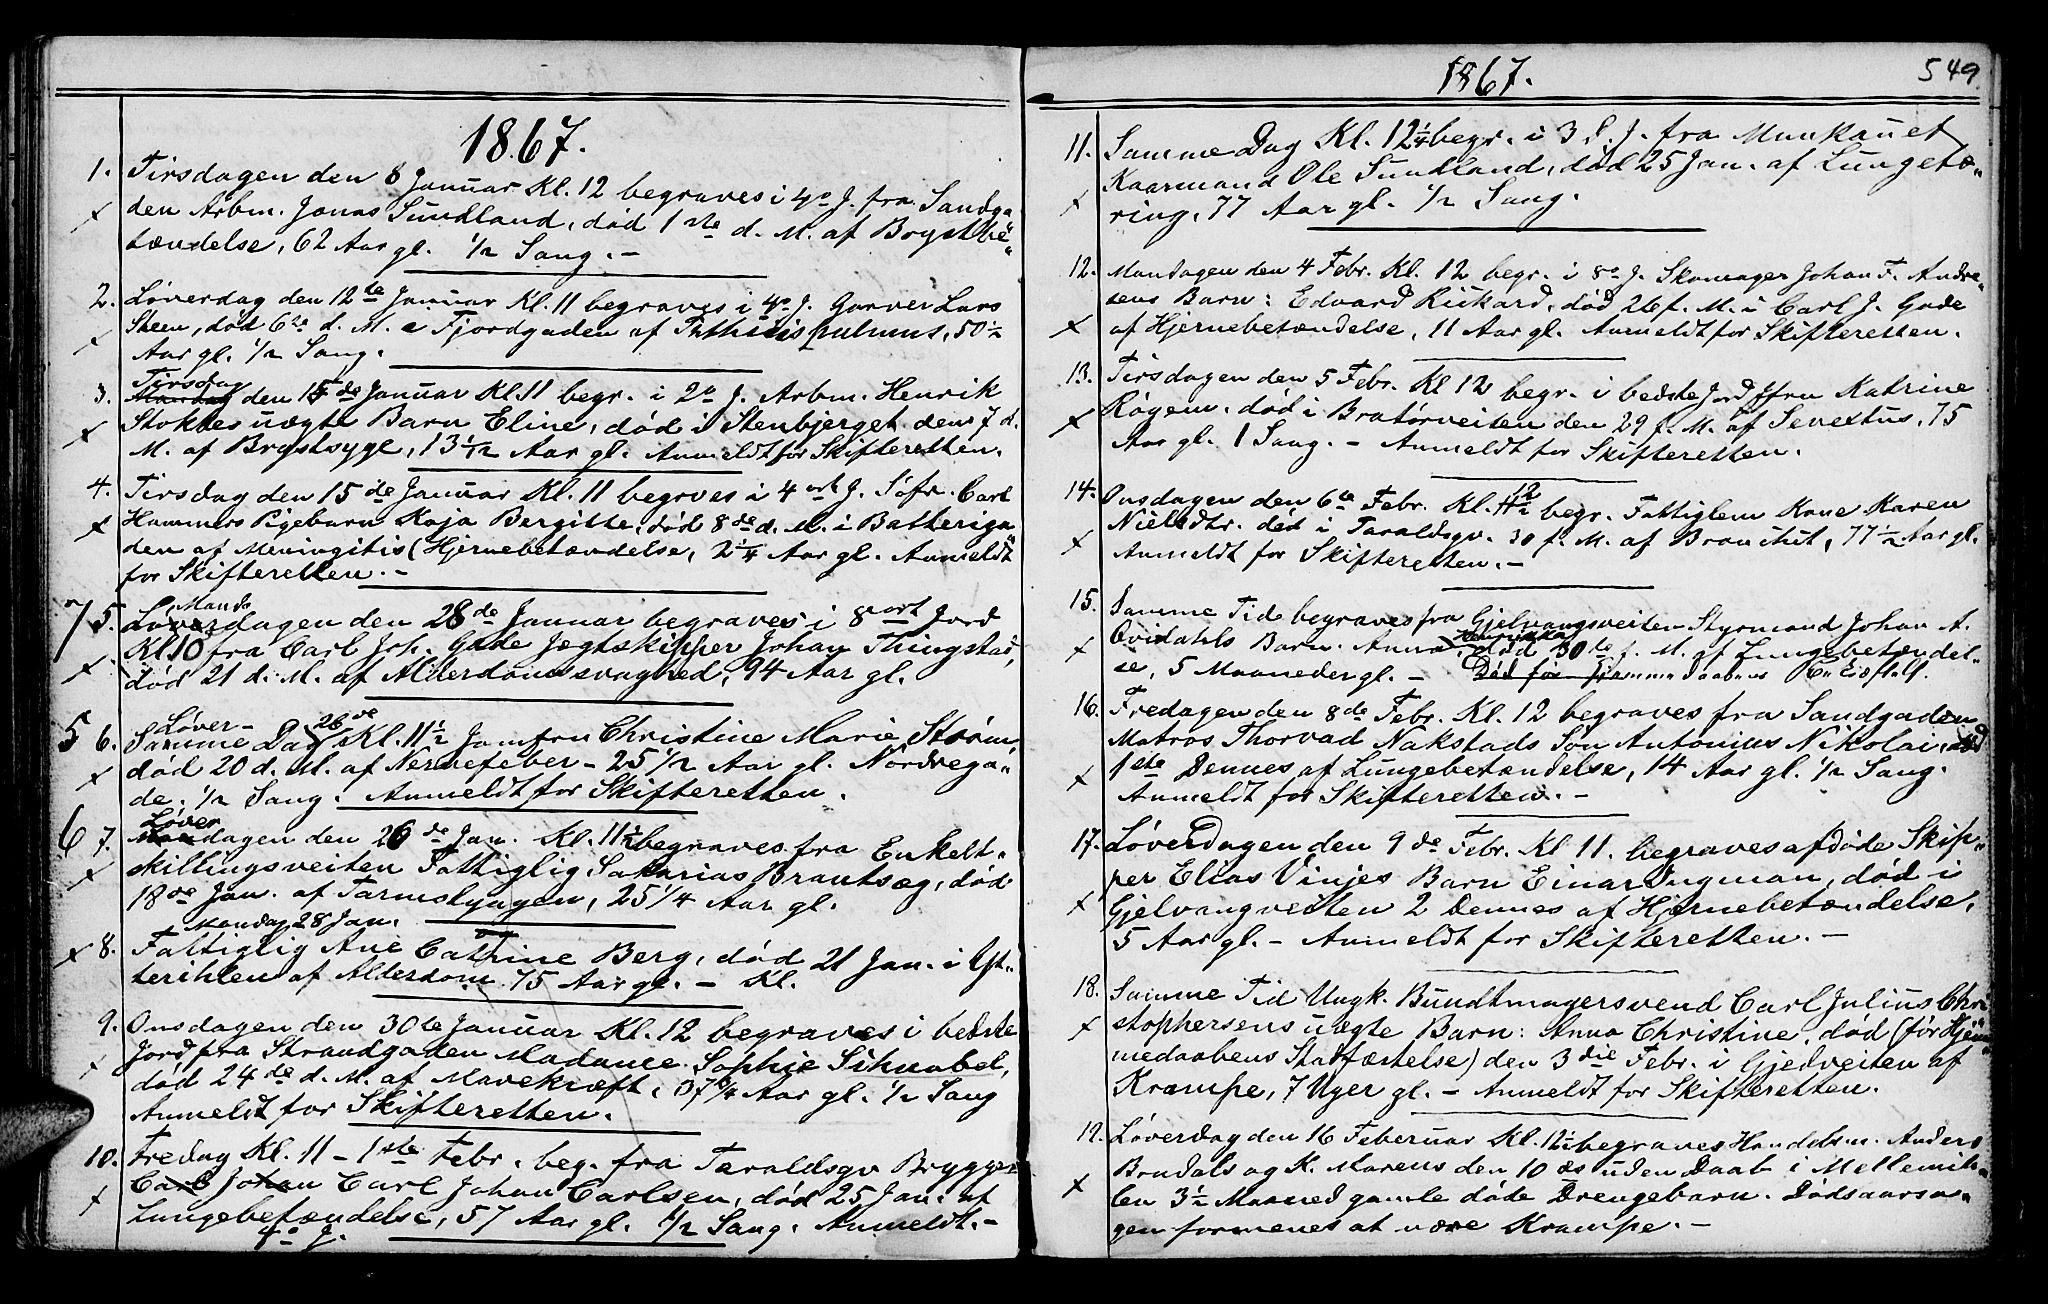 1867.
1. Tirsdagen den 8 Januar Kl. 12 begraves i 4de J. fra Sandga
den Arbm. Jonas Sundland, død 1ste d. M. af Brystbe„
tændelse, 62 Aar gl. 1/2 Sang. –
2. Løverdag den 12te Januar Kl. 11 begraves i 4de J. Garver Lars
Steen, død 6te d. M. i Fjordgaden af Pthisis pulmus, 50 1/2
Aar gl. 1/2 Sang.
Tirsdag
3. Mandag den 15de Januar Kl. 11 begr. i 2de J. Arbm. Henrik
Stoktes uægte Barn Eline, død i Stenbjerget den 7 d.
M. af Brystsyge, 13 1/12 Aar gl. Anmeldt for Skifteretten.
4. Tirsdag den 15de Januar Kl. 11 begraves i 4 ort J. Søfr. Carl
Hammers Pigebarn Kaja Bergitte, død 8de d. M. i Batteriga„
den af Meningitis (Hjernebetændelse, 2 1/4 Aar gl. Anmeldt
for Skifteretten. –
Mand
7 5. Løverdagen den 28de Januar begraves i 8 ort Jord
Kl 10 fra Carl Joh. Gade Jægtskipper Johan Thingstad,
død 21 d. M. af Alderdomssvaghed, 94 Aar gl.
Løver– 26de
5 6. Samme Dag Kl. 11 1/2 Jomfru Christine Marie Strøm,
død 20 d. M. af Nervefeber – 25 1/2 Aar gl. Nordrega„
de. 1/2 Sang. Anmeldt for Skifteretten.
Løver
6 7. Mandagen den 26de Jan. Kl. 11 1/2 begraves fra Enkelt„
skillingsveiten Fattiglig Sakarias Brautsæg, død
18de Jan. af Tarmslyngen, 25 1/4 Aar gl.
Mandag 28 Jan.
8. Fattiglig Ane Cathrine Berg, død 21 Jan. i Ys„
terihlen af Alderdom 75 Aar gl. – Kl.
9. Onsdagen den 30te Januar Kl. 12 begraves i bedste
Jord fra Strandgaden Madame Sophie Schnabel,
død 24de d. M. af Mavekræft, 37 3/4 Aar gl. 1/2 Sang
Anmeldt for Skifteretten.
10. Fredag Kl. 11 – 1ste Febr. beg. fra Taraldsgv Brygger
Carl Johan Carl Johan Carlsen, død 25 Jan. af
Lungebetændelse, 57 Aar gl. 1/2 Sang. Anmeldt. –
4de J.
1867.
549.
11. Samme Dag Kl. 12 1/4 begr. i 3 J. fra Munkauet
Kaarmand Ole Sundland, død 25 Jan. af Lungetæ„
ring, 77 Aar gl. 1/2 Sang.
12. Mandagen den 4 Febr. Kl. 12 begr. i 8de J. Skomager Johan F. Andre„
sens Barn: Edvard Rickard, død 26 f. M. i Carl J. Gade
af Hjernebetændelse, 11 Aar gl. Anmeldt for Skifteretten.
13. Tirsdagen den 5 Febr. Kl 12 begr. i bedste Jord Jfru Katrine
Røgem, død i Bratørveiten den 29 f. M. af Senectus, 75
Aar gl. 1 Sang. – Anmeldt for Skifteretten.
14. Onsdagen den 6te Febr. Kl. 11 1/2 12 begr. Fattiglem Kone Karen
Nielsdtr. død i Taraldsgv. 30 f. M. af Bronchit, 77 1/2 Aar gl.
Anmeldt for Skifteretten. –
15. Samme Tid begraves fra Gjelvangsveiten Styrmand Johan A.
Ovidahls Barn: Anna Henrikka, død 30te f. M. af Lungebetændel„
se, 5 Maaneder gl. –
16. Fredagen den 8de Febr. Kl. 12 begraves fra Sandgaden
Matros Thorvad Nakstads Søn Antonius Nikolai, død
1ste Dennes af Lungebetændelse, 14 Aar gl. 1/2 Sang.
Anmeldt for Skifteretten. –
17. Løverdagen den 9de Febr. Kl 11. begraves afdøde Skip„
per Elias Vinjes Barn Einar Ingman, død i
Gjelvangveiten 2 Dennes af Hjernebetændelse,
5 Aar gl. – Anmeldt for Skifteretten. –
18. Samme Tid Ungk. Bundtmagersvend Carl Julius Chri
stophersens uægte Barn: Anna Christine, død (før Hjem„
medaabens Stadfæstelse) den 3die Febr. i Gjedveiten af
Krampe, 7 Uger gl. – Anmeldt for Skifteretten.
19. Løverdag den 16 Februar Kl. 12 1/2 begraves Handelsm. Anders
Brudals og K. Marens den 10 ds uden Daab i Mellemih„
len 3 1/2 Maaned gamle døde Drengebarn. Dødsaarsa„
gen formenes at være Krampe. –